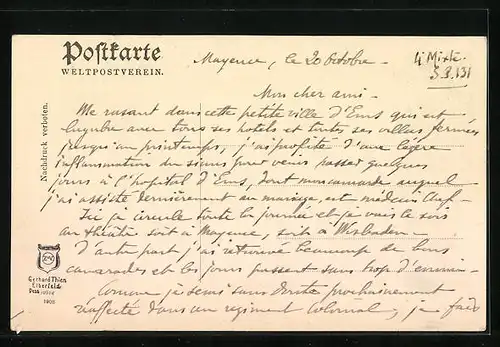 Postkarte
WELTPOSTVEREIN.
Nachdruck verboten.
Mayence, le 20 Octobre -
4 Mixte.
Mon cher ami -
Me rasant dans cette petite ville d'Ems qui est
lugubre avec tous ses hotels et toutes ses villas fermées
jusqu'au printemps, j'ai profité d'une légère
inflammation du pour venir passer quelques
jours à l'hopital d'Ems, dont mon camarade auquel
j'ai assisté dernièrement au mariage, est médecin chef -
Ici je circule toute la journée et je vais le soir
au théâtre soit à Mayence, soit à Wiesbaden -
D'autre part j'ai retrouvé beaucoup de bons
camarades et les jours passent sans trop d'ennui -
Comme je serai sans doute prochainement
réaffecté dans un régiment colonial, je fais
Gerhard Thien
Elberfeld
1906